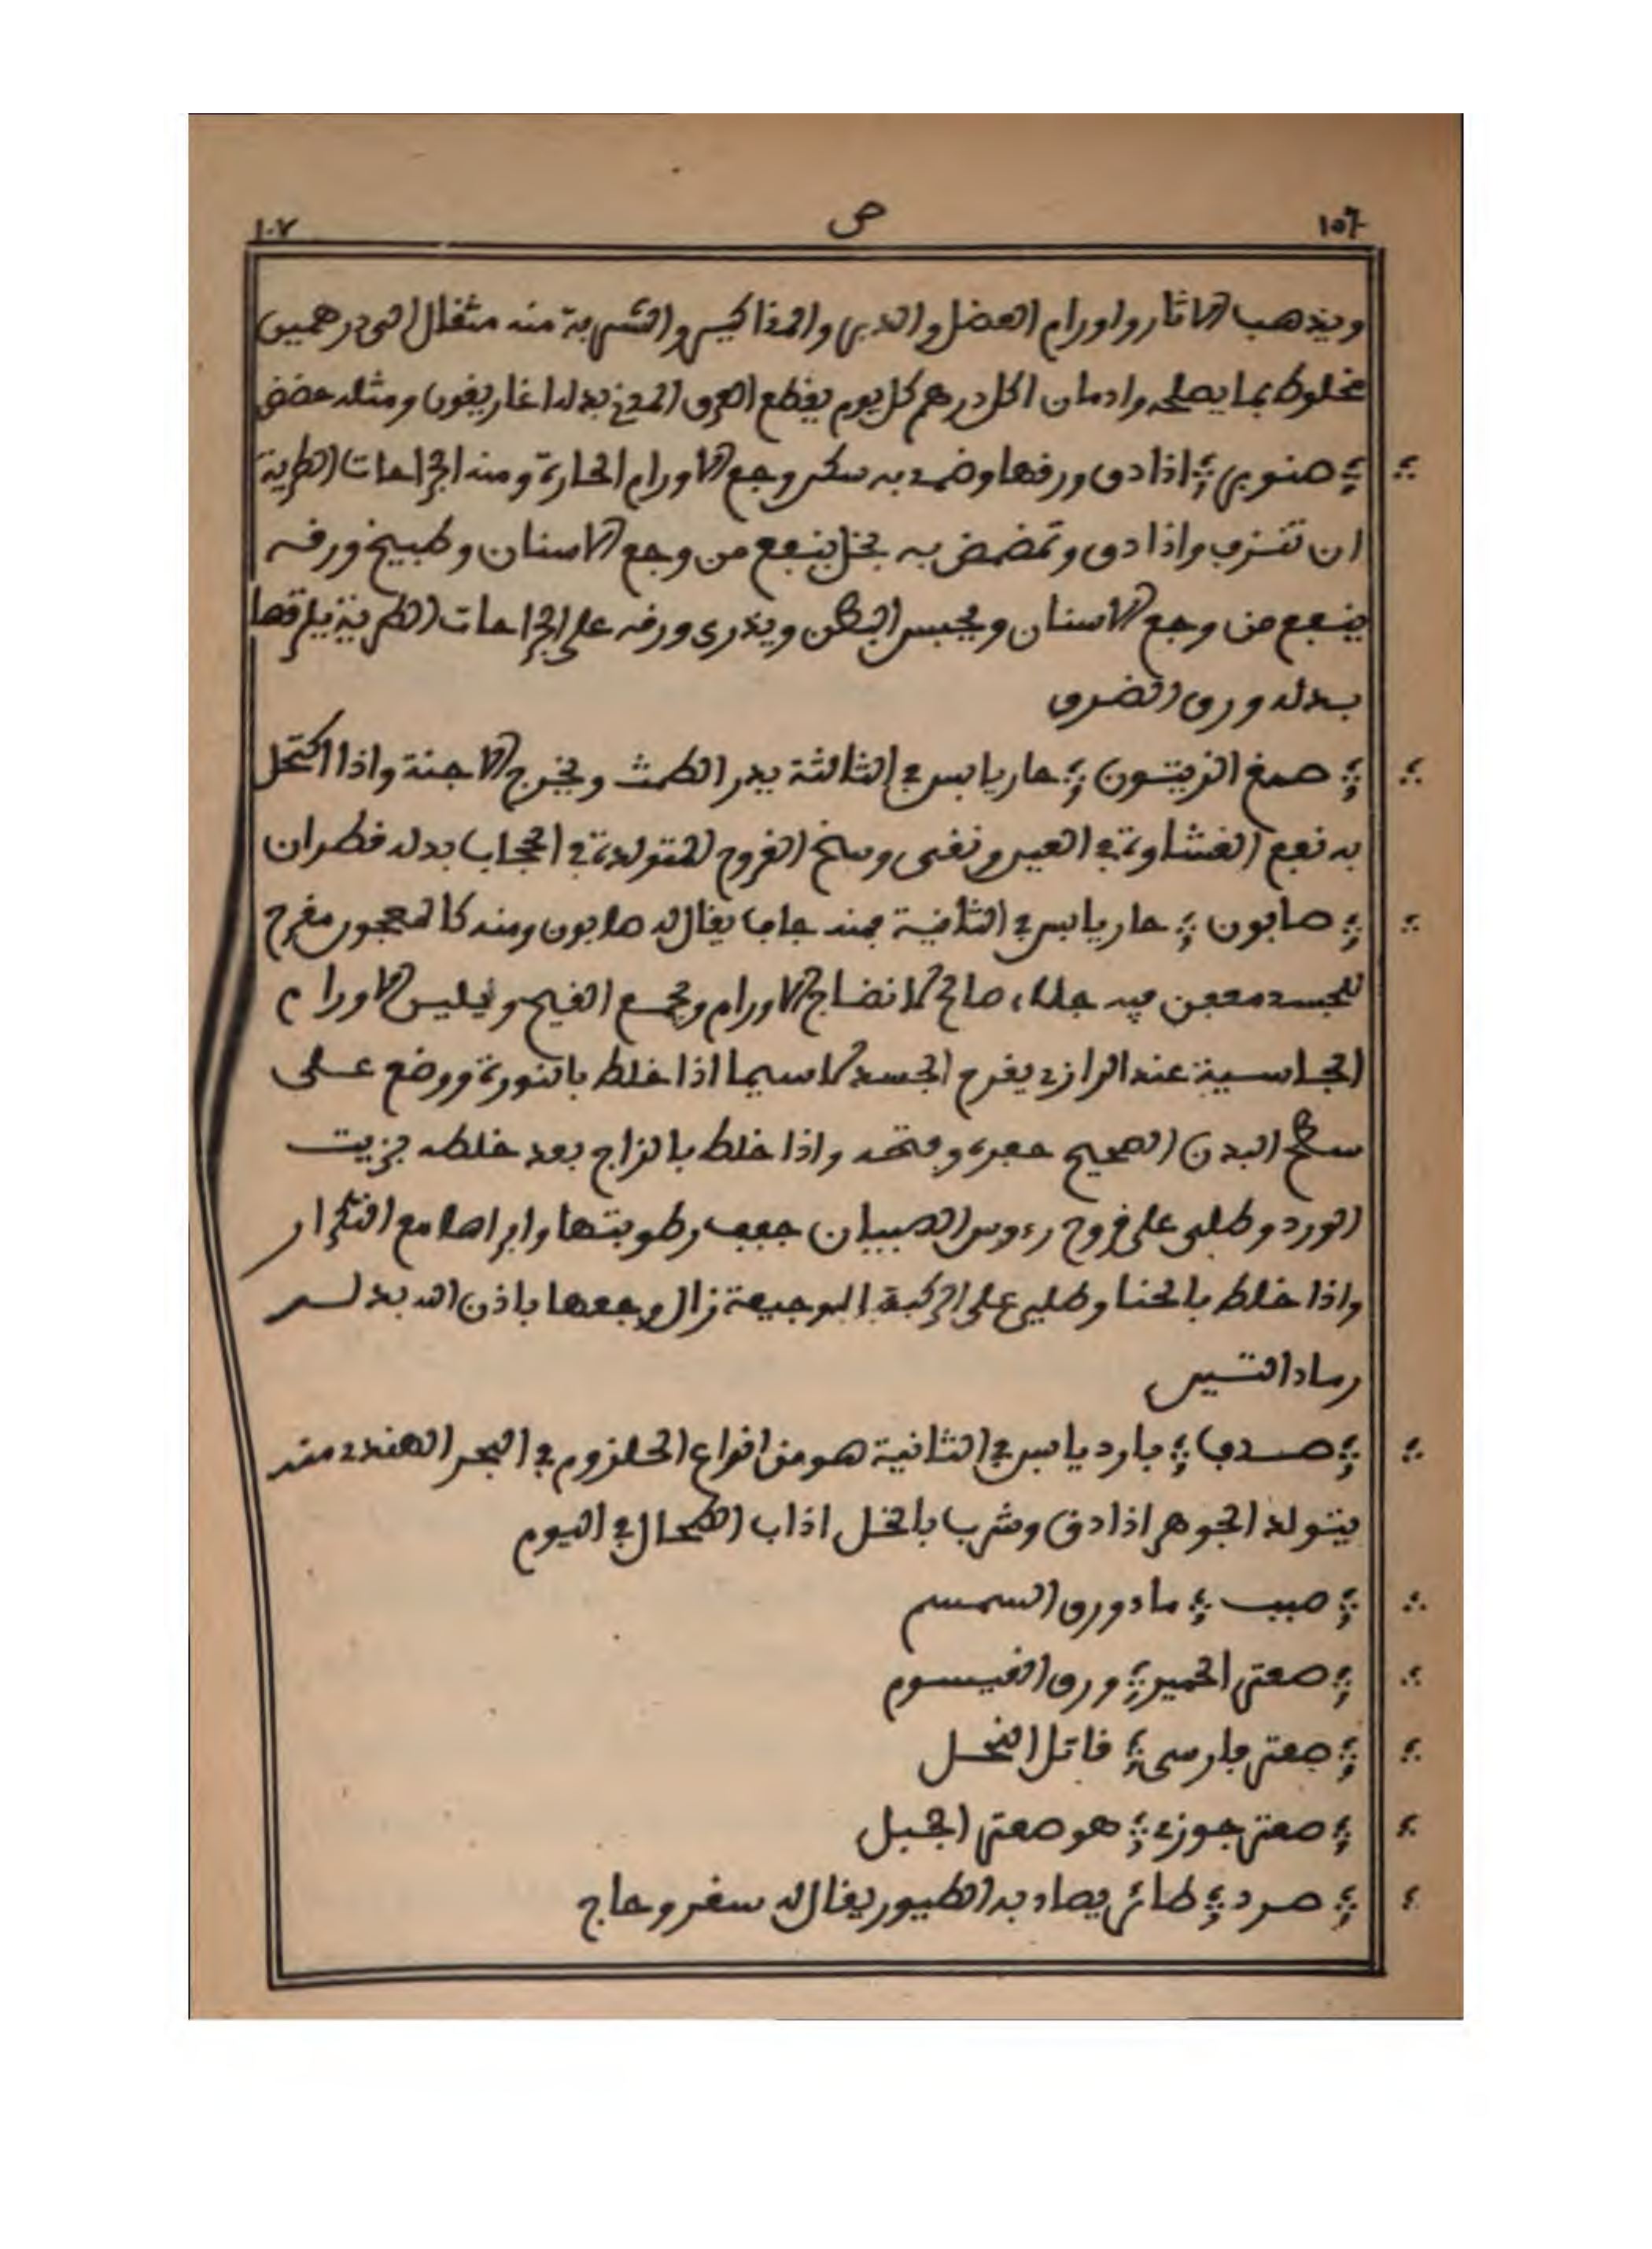 ١٥٦ ص ١٠٧
ويذهب الاثار واورام العضل والدبر والمذاكير والشربة منه مثقال الى درهمين
مخلوط بما يصلحه وادمان اكل درهم كل يوم يقطع العرق بدله اغاريقون ومثله حضض
صنوبر اذا دق ورقها وضمد به سكن وجع الاورام الحارة ومنع الجراحات الطرية
ان تنزف واذا دق وتمضمض به بخل ينفع من وجع الاسنان وطبيخ ورقه
ينفع من وجع الاسنان ويحبس البطن ويذرى ورقه على الجراحات الطرية يلزقها
بدله ورق الضرو
صمغ الزيتون حار يابس في الثالثة يدر الطمث ويخرج الاجنة واذا اكتحل
به نفع الغشاوة في العين ونقى وسخ القروح المتولدة في الحجاب بدله قطران
صابون حار يابس في الثانية منه جاف يقال له صابون ومنه كالمعجون مقرح
للجسد معفن فيه جلاء صالح لانضاج الاورام وجمع القيح وتليين الاورام
الجاسية عند الرازي يقرح الجسد لاسيما اذا خلط بالنورة ووضع على
سطح البدن الصحيح حفره وفتحه واذا خلط بالزاج بعد خلطه بزيت
الورد وطلي على قروح رءوس الصبيان جفف رطوبتها وابراها مع التكرار
واذا خلط بالحنا وطلي على الركبة الوجيعة زال وجعها باذن الله بدله
رماد التين
صدف بارد يابس في الثانية هو من انواع الحلزوم في البحر الهندي منه
يتولد الجوهر اذا دق وشرب بالخل اذاب الطحال في اليوم
صبيب ماء ورق السمسم
صعتر الحمير ورق القيسوم
صعتر فارسي قاتل النحل
صعتر جوزي هو صعتر الجبل
صرد طائر يصاد به الطيور يقال له سفر وعاج